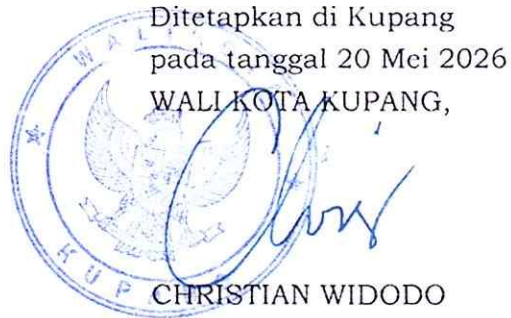 Ditetapkan di Kupang
pada tanggal 20 Mei 2026
WALI KOTA KUPANG,
CHRISTIAN WIDODO